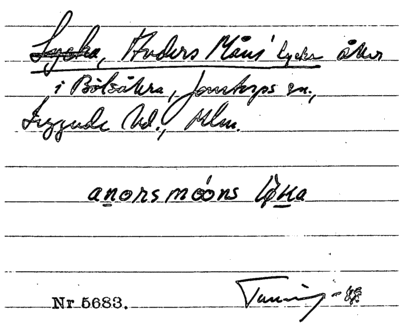 Lycka, Anders Måns' lycka åker
i Bölsåkra, Jonstorps sn.,
Luggude hd., Mlm.
anorsmóons
Nr 5683.